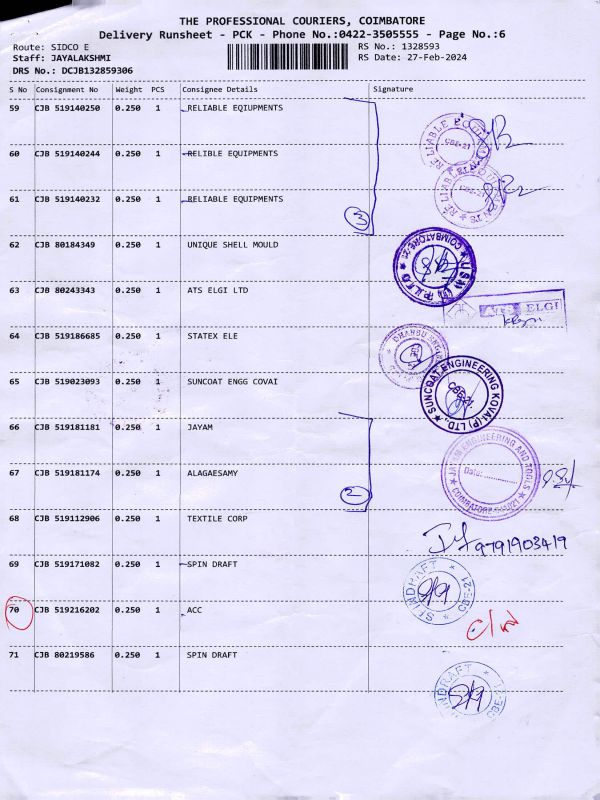 THE PROFESSIONAL COURIERS, COIMBATORE
Delivery Runsheet - PCK - Phone No.:0422-3505555 - Page No.:6
Route: SIDCO E
RS No.: 1328593
Staff: JAYALAKSHMI
RS Date: 27-Feb-2024
DRS No.: DCJB132859306
S No Consignment No Weight PCS Consignee Details Signature
59 CJB 519140250 0.250 1 RELIABLE EQIUPMENTS
60 CJB 519140244 0.250 1 RELIBLE EQUIPMENTS
61 CJB 519140232 0.250 1 RELIABLE EQUIPMENTS
3
62 CJB 80184349 0.250 1 UNIQUE SHELL MOULD
COIMBATORE-21
63 CJB 80243343 0.250 1 ATS ELGI LTD
ELGI
64 CJB 519186685 0.250 1 STATEX ELE
65 CJB 519023093 0.250 1 SUNCOAT ENGG COVAI
SUNCOAT ENGINEERING KOVAI (P) LTD.,
CBE-21.
66 CJB 519181181 0.250 1 JAYAM
67 CJB 519181174 0.250 1 ALAGAESAMY
2
JAYAM ENGINEERING AND TOOLS
Date:
COIMBATORE-641021
68 CJB 519112906 0.250 1 TEXTILE CORP
9791903419
69 CJB 519171082 0.250 1 SPIN DRAFT
CBE-21
70 CJB 519216202 0.250 1 ACC
71 CJB 80219586 0.250 1 SPIN DRAFT